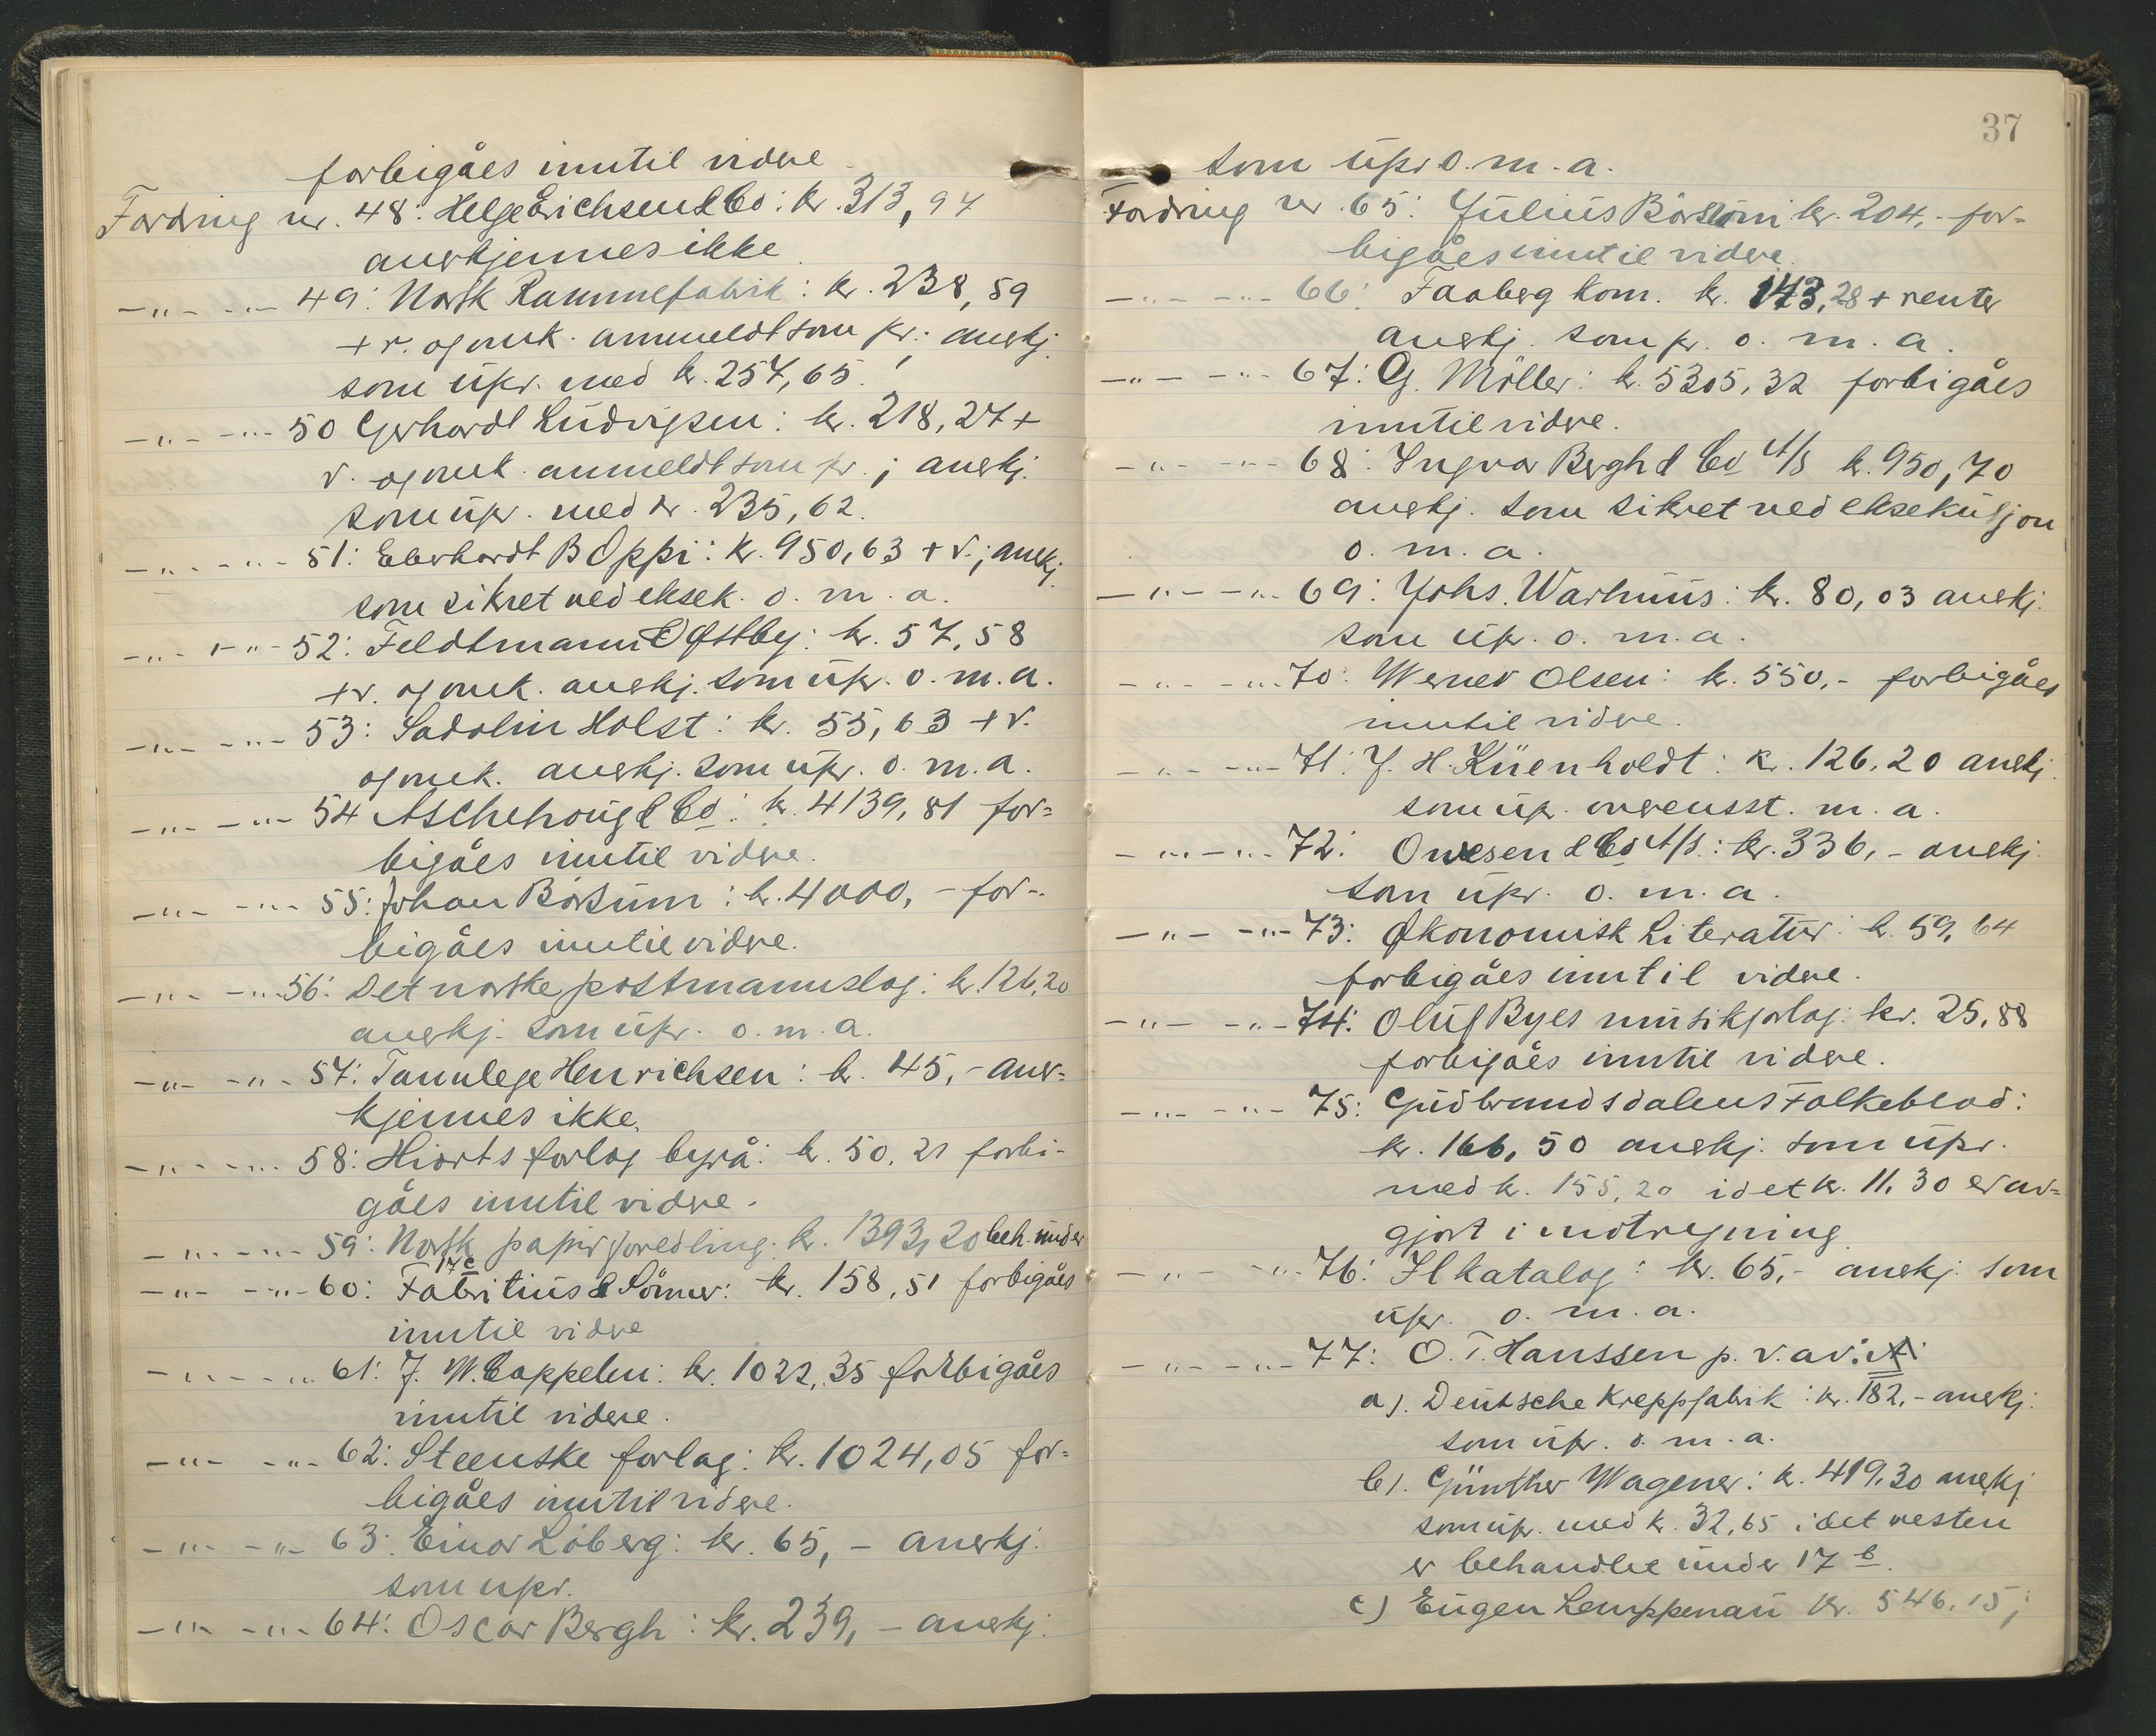 forbigåes inntil videre.
Fordring nr. 48: Helge Erichsen & Co: kr. 313,94
anerkjennes ikke.
-"- -"- 49: Norsk Rammefabrik: kr. 238,59
+ r. og omk. anmeldt som pr.; anerkj.
som upr. med kr. 257,65.
-"- -"- 50 Gerhardt Ludvigsen: kr. 218,27 +
r. og omk. anmeldt som pr.; anerkj.
som upr. med kr. 235,62.
-"- -"- 51: Eberhardt B Oppi: kr. 950,63 + r.; anerkj.
som sikret ved eksek. o. m. a.
-"- -"- 52: Feldtmann & Østby: kr. 57,58
+ r. og omk. anerkj. som upr. o. m. a.
-"- -"- 53: Sadolin Holst: kr. 55,63 + r.
og omk. anerkj. som upr. o. m. a.
-"- -"- 54 Aschehoug & Co: kr. 4139,81 for=
bigåes inntil videre.
-"- -"- 55: Johan Börsum: kr. 4000,- for-
bigåes inntil videre.
-"- -"- 56: Det norske postmannslag: kr. 126,20
anerkj. som upr. o. m. a.
-"- -"- 57: Tannlege Henrichsen: kr. 45,- aner=
kjennes ikke.
-"- -"- 58: Hiorts forlag byrå: kr. 50,21 forbi-
gåes inntil videre.
-"- -"- 59: Norsk papirforedling: kr. 1393,20 beh. under
17c
-"- -"- 60: Fabritius & Sönner: kr. 158,51 forbigåes
inntil videre
-"- -"- 61: J. W. Cappelen: kr. 1022,35 forbigåes
inntil videre.
-"- -"- 62: Steenske forlag: kr. 1024,05 for=
bigåes inntil videre.
-"- -"- 63: Einar Löberg: kr. 65,- anerkj.
som upr.
-"- -"- 64: Oscar Bergh: kr. 239,- anerkj.
37
som upr. o. m. a.
Fordring nr. 65: Julius Börsum kr. 204,- for=
bigåes inntil videre.
-"- -"- 66: Faaberg kom. kr. 143,28 + renter
anerkj. som pr. o. m. a.
-"- -"- 67: G. Möller: kr. 5305,32 forbigåes
inntil videre.
-"- -"- 68: Ingvar Bergh & Co A/S kr. 950,70
anerkj. som sikret ved eksekusjon
o. m. a.
-"- -"- 69: Johs. Warhuus: kr. 80,03 anerkj.
som upr. o. m. a.
-"- -"- 70: Werner Olsen: kr. 550,- forbigåes
inntil videre.
-"- -"- 71: J. H. Küenholdt: kr. 126,20 anerkj.
som upr. overensst. m. a.
-"- -"- 72: Owesen & Co A/S.: kr. 336,- anerkj.
som upr. o. m. a.
-"- -"- 73: Økonomisk Literatur: kr. 59,64
forbigåes inntil videre.
-"- -"- 74: Oluf Byes musikforlag: kr. 25,88
forbigåes inntil videre.
-"- -"- 75: Gudbrandsdalens Folkeblad:
kr. 166,50 anerkj. som upr.
med kr. 155,20 idet kr. 11,30 er av=
gjort i motregning
-"- -"- 76: Il katalog: kr. 65,- anerkj. som
upr. o. m. a.
-"- -"- 77: O. T. Hanssen p. v. av:
a). Deutsche Kreppfabrik: kr. 182,- anerkj.
som upr. o. m. a.
b). Günther Wagener: kr. 419,30 anerkj.
som upr. med kr. 32,65 idet resten
er behandlet under 17 b.
c) Eugen Lemppenau kr. 546,15;